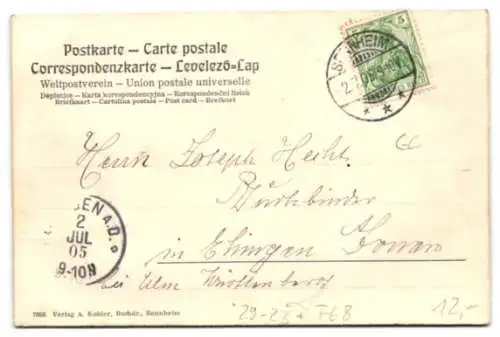 Postkarte – Carte postale
Correspondenzkarte – Levelező-Lap
Weltpostverein – Union postale universelle
Dopisnice – Karta korespondencyjna – Korespondenční lístek
Briefkaart – Cartolina postale – Post card – Brefkort
5
Herrn Joseph Hecht
Buchbinder
in Ehingen Donau
bei Ulm Württemberg
EN A.D.
2
JUL
05
9-10
Verlag A. Kohler, Buchdr., Sennheim
12,-